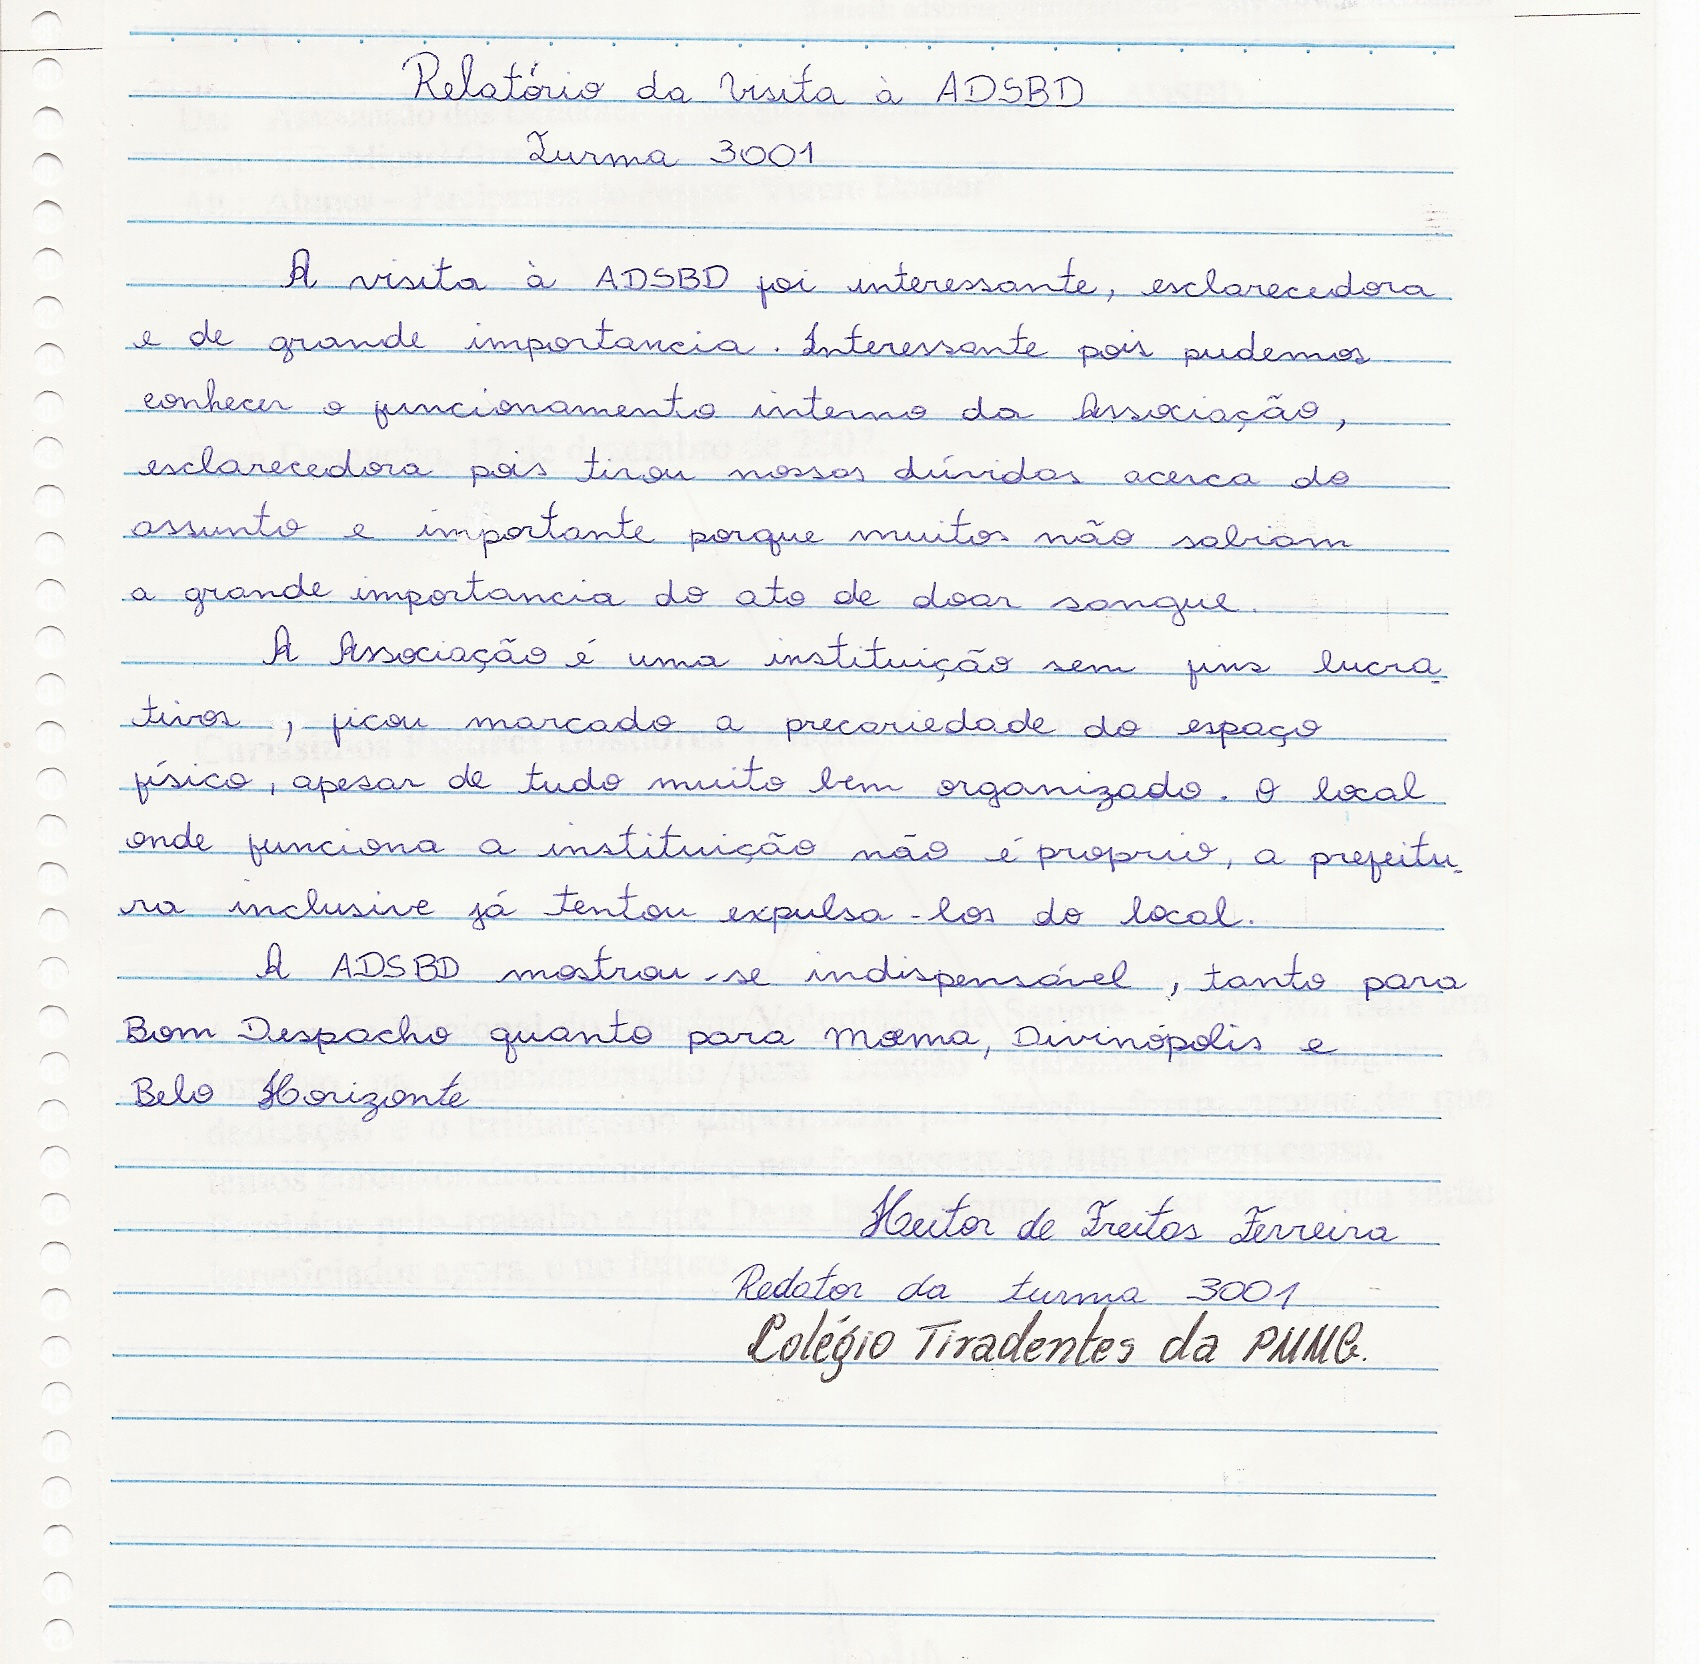 Relatório da Visita à ADSBD
Turma 3001
A visita à ADSBD foi interessante, esclarecedora
e de grande importancia. Interessante pois pudemos
conhecer o funcionamento interno da Associação,
esclarecedora pois tirou nossas dúvidas acerca do
assunto e importante porque muitos não sabiam
a grande importancia do ato de doar sangue.
A Associação é uma instituição sem fins lucra-
tivos, ficou marcado a precariedade do espaço
físico, apesar de tudo muito bem organizado. O local
onde funciona a instituição não é proprio, a prefeitu-
ra inclusive já tentou expulsa-los do local.
A ADSBD mostrou-se indispensável, tanto para
Bom Despacho quanto para Moema, Divinópolis e
Belo Horizonte
Heitor de Freitas Ferreira
Redator da turma 3001
Colégio Tiradentes da PMMG.